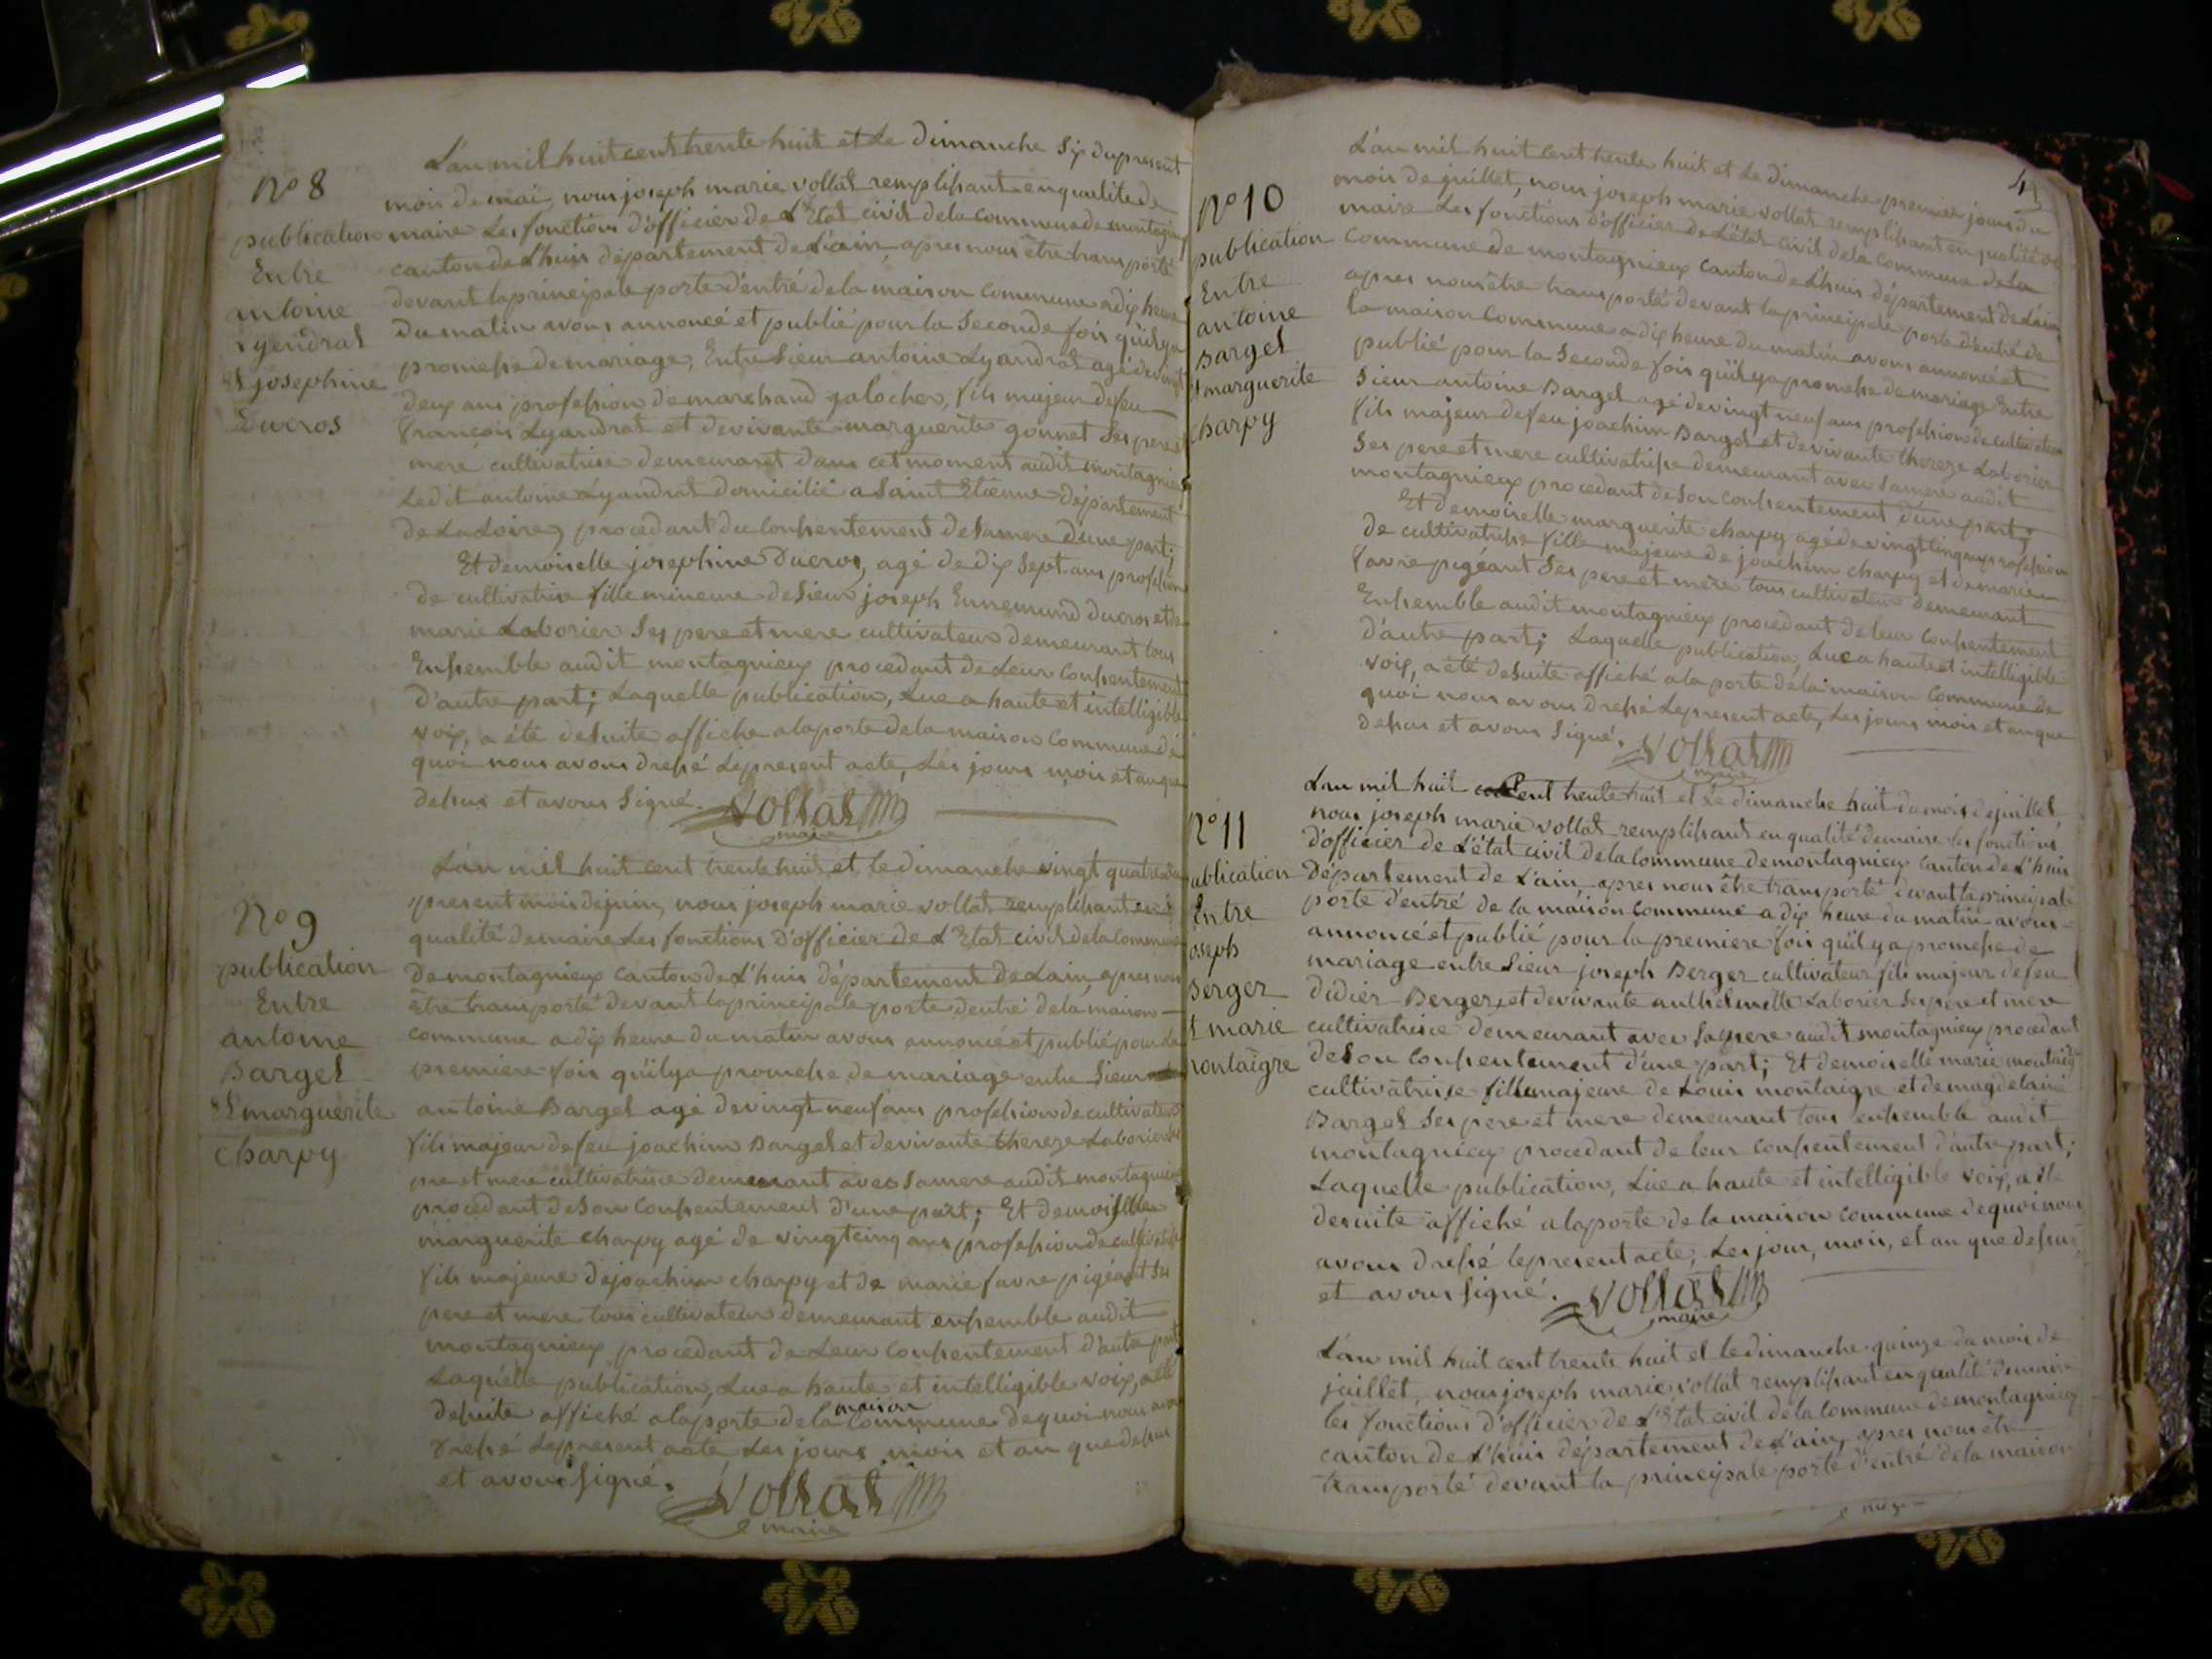 N° 8
publication
Entre
antoine
Lyendrat
et josephine
Ducros
L'an mil huit cent trente huit et Le dimanche Six du present
mois de mai, nous joseph marie vollat remplissant en qualité de
maire Les fonctions d'officier de L'Etat civil de la commune de montagnieux
canton de L'huis département de L'ain, apres nous être transporté
devant la principale porte d'entré de la maison commune a dix heure
du matin avons annoncé et publié pour la Seconde fois qu'il y a
promesse de mariage, Entre Sieur antoine Lyandrat agé de vingt
deux ans profession de marchand galocher, fils majeur de feu
françois Lyandrat et de vivante marguerite gonnet Ses pere et
mere cultivatrise demeurant dans cet moment audit montagnieux
Ledit antoine Lyandrat domicilié a Saint Etienne Département
de La Loire, procedant du Consentement de Samere d'une part;
Et demoiselle josephine Ducros, agé de dix Sept ans profession
de cultivatrise fille mineure de Sieur joseph Ennemund Ducros et de
marie Laborier Ses pere et mere cultivateur demeurant tous
Ensemble audit montagnieux procedant de Leur Consentement
d'autre part; Laquelle publication, Lue a haute et intelligible
voix, a été de Suite affiche a la porte de la maison Commune de
quoi nous avons dressé Le present acte, Les jours mois et an que
dessus et avons Signé. Vollat
maire
N° 9
publication
Entre
antoine
Barget
et marguerite
charpy
L'an mil huit cent trente huit et le dimanche vingt quatre du
present mois de juin, nous joseph marie vollat remplissant en
qualité de maire Les fonctions d'officier de L'Etat civil de la Commune
de montagnieux canton de L'huis département de Lain, apres nous
etre transporté devant la principale porte d'entré de la maison
commune a dix heure du matin avons annoncé et publié pour la
premiere fois qu'il y a promesse de mariage entre Sieur
antoine Barget agé de vingt neuf ans profession de cultivateur
fils majeur de feu joachim Barget et de vivante thereze Laborier Ses
pre et mere cultivatrise demeurant avec Samere audit montagnieux
procedant de Son Consentement d'une part; Et demoiselle
marguerite charpy agé de vingt cinq ans profession de cultivatrise
fils majeure de joachim charpy et de marie favre pigéant Ses
pere et mere tous cultivateur demeurant ensemble audit
montagnieux procedant de Leur Consentement d'autre part
Laquelle publication, Lue a haute et intelligible voix, a été
desuite affiché a la porte de la maison Commune de quoi nous avons
dressé Le present acte Les jours mois et an que dessus
et avons signé. Vollat
maire
4
N° 10
publication
Entre
antoine
Barget
et marguerite
charpy
L'an mil huit cent trente huit et Le dimanche premier jours du
mois de juillet, nous joseph marie vollat remplissant en qualité de
maire Les fonctions d'officier de L'état civil de la commune de la
Commune de montagnieux canton de L'huis département de L'ain
apres nous être transporté devant la principale porte d'entré de
la maison Commune a dix heure du matin avons annoncé et
publié pour la Seconde fois qu'il y a promesse de mariage Entre
Sieur antoine Barget agé de vingt neuf ans profession de cultivateur
fils majeur de feu joachim Barget et de vivante thereze Laborier
Ses pere et mere cultivatrise demeurant avec Samere audit
montagnieux procedant de Son Consentement d'une part;
Et demoiselle marguerite charpy agé de vingt cinq ans profession
de cultivatrise fille majeure de joachim charpy et de marie
favre pigéant Ses pere et mere tous cultivateur demeurant
Ensemble audit montagnieux procedant de leur Consentement
d'autre part; Laquelle publication, Lue a haute et intelligible
voix, a été de Suite affiché a la porte de la maison Commune de
quoi nous avons dressé Le present acte, Les jours mois et an que
dessus et avons Signé. Vollat
maire
N° 11
ublication
Entre
oseph
Berger
et marie
montaigre
L'an mil huit Cent trente huit et Le dimanche huit du mois de juillet,
nous joseph marie vollat remplissant en qualité de maire les fonctions
d'officier de L'état civil de la Commune de montagnieux Canton de L'huis
Département de L'ain, apres nous être transporté devant la principale
porte d'entré de la maison Commune a dix heure du matin avons
annoncé et publié pour la premiere fois qu'il y a promesse de
mariage entre Sieur joseph Berger cultivateur fils majeur de feu
didier Berger, et de vivante anthelmette Laborier Ses pere et mere
cultivatrise demeurant avec Samere audit montagnieux procedant
de Son Consentement d'une part; Et demoiselle marie montaigre
cultivatrise fille majeure de Louis montaigre et de magdelaine
Barget Ses pere et mere demeurant tous ensemble audit
montagnieux procedant de leur Consentement d'autre part;
Laquelle publication, Lue a haute et intelligible voix, a été
desuite affiché a la porte de la maison commune de quoi nous
avons dressé le present acte, Les jour, mois, et an que dessus
et avons signé. Vollat
maire
L'an mil huit cent trente huit et le dimanche quinze du mois de
juillet, nous joseph marie vollat remplissant en qualité de maire
les fonctions d'officier de L'Etat civil de la Commune de montagnieux
canton de L'huis département de L'ain, apres nous être
transporté devant la principale porte d'entré de la maison